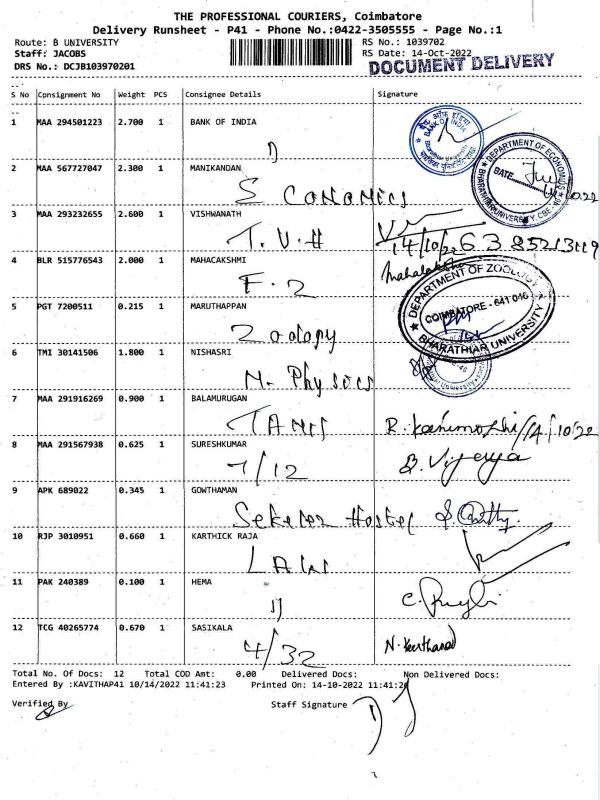 THE PROFESSIONAL COURIERS, Coimbatore
Delivery Runsheet - P41 - Phone No.:0422-3505555 - Page No.:1
Route: B UNIVERSITY RS No.: 1039702
Staff: JACOBS RS Date: 14-Oct-2022
DRS No.: DCJB103970201 DOCUMENT DELIVERY
S No Consignment No Weight PCS Consignee Details Signature
1 MAA 294501223 2.700 1 BANK OF INDIA
BANK OF INDIA
2 MAA 567727047 2.300 1 MANIKANDAN
DEPARTMENT OF ECONOMICS
DATE
BHARATHIAR UNIVERSITY, CBE - 46
3 MAA 293232655 2.600 1 VISHWANATH
T.V.H 14/10/22
4 BLR 515776543 2.000 1 MAHACAKSHMI
F-2
DEPARTMENT OF ZOOLOGY
COIMBATORE - 641 046
BHARATHIAR UNIVERSITY
5 PGT 7200511 0.215 1 MARUTHAPPAN
Zoology
6 TMI 30141506 1.800 1 NISHASRI
M. Physics
7 MAA 291916269 0.900 1 BALAMURUGAN
8 MAA 291567938 0.625 1 SURESHKUMAR
7/12
9 APK 689022 0.345 1 GOWTHAMAN
Hostel
10 RJP 3010951 0.660 1 KARTHICK RAJA
11 PAK 240389 0.100 1 HEMA
12 TCG 40265774 0.670 1 SASIKALA
4/32
Total No. Of Docs: 12 Total COD Amt: 0.00 Delivered Docs: Non Delivered Docs:
Entered By :KAVITHAP41 10/14/2022 11:41:23 Printed On: 14-10-2022 11:41:2
Verified By Staff Signature